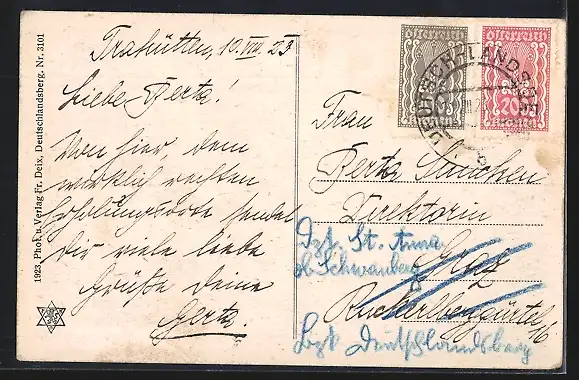 1923, Phot. u. Verlag Fr. Deix, Deutschlandsberg, Nr. 3101
Trahütten, 10. VIII. 23
Liebe Berta!
Von hier, dem
wirklich rechten
Erholungsorte sendet
Dir viele liebe
Grüße Deine
Gerta.
österreich
österreich
200
DEUTSCH-LANDSBERG
b
Frau
Berta
Direktorin
Graz
Ruckerlberggürtel 16
Dzt. St. Anna
ob Schwanberg
Bzk Deutschlandsberg